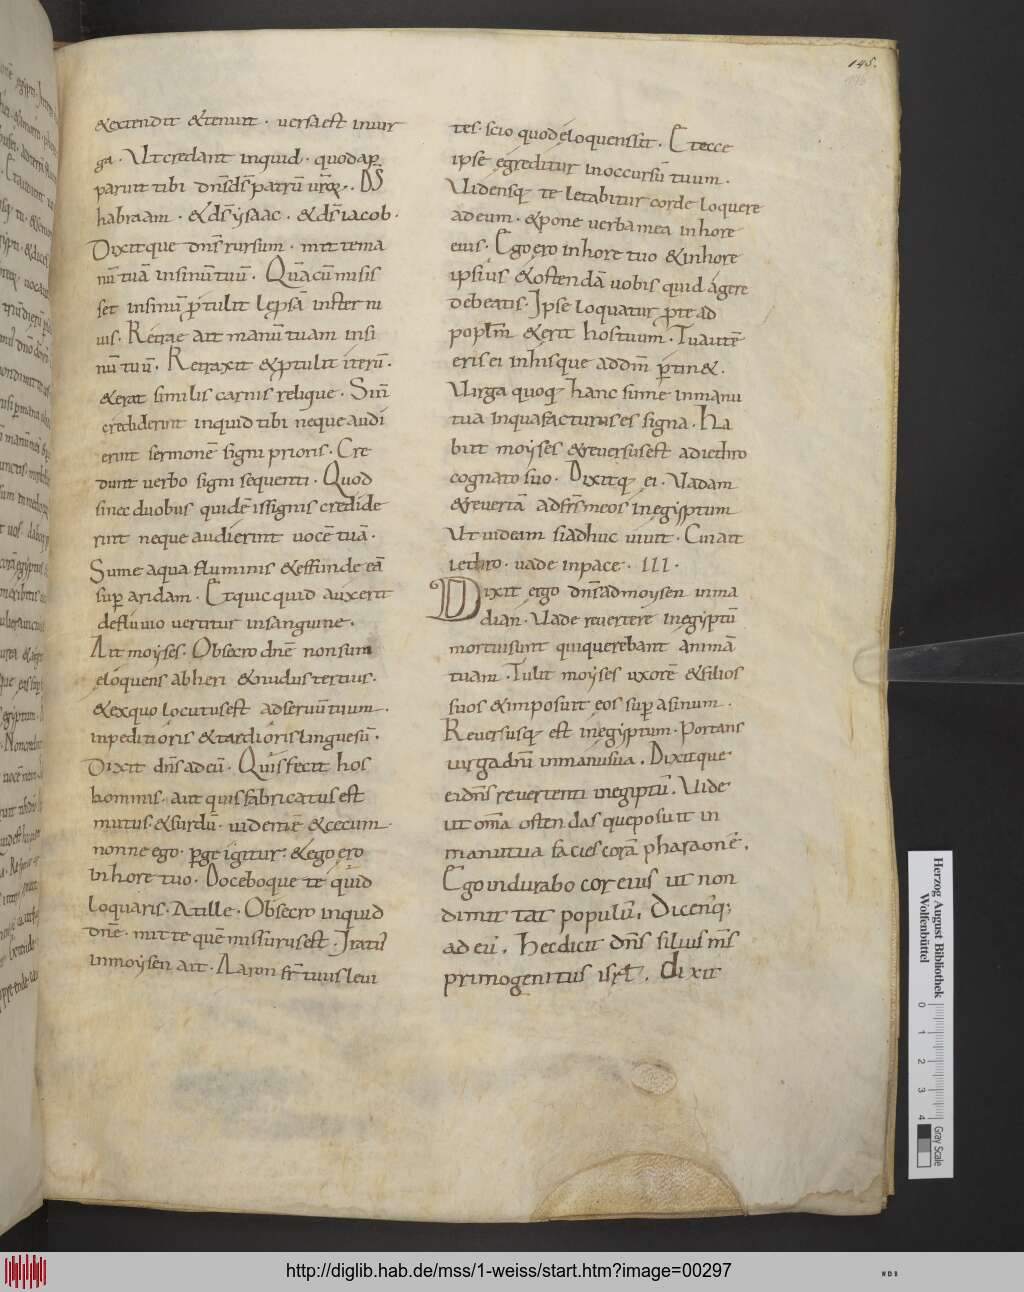 145.
&extendit &tenuit · uersaest inuir
ga · Utcredant inquid · quodap
paruit tibi dn̄sd̄s patrū ur̄oꝝ · D̄S
habraam · &d̄s ysaac · &d̄s iacob ·
Dixitque dn̄s rursum · mittema
nū tuā insinū tuū · Quā cū misis
set insinū p̄tulit lepsā instar ni
uis · Retrae ait manū tuam insi
nū tuū · Retraxit &ptulit iterū ·
&erat similis carnis relique · Sin̄
crediderint inquid tibi neque audi
erint sermonē signi prioris · Cre
dunt uerbo signi sequenti · Quod
sinec duobus quidē issignis credide
rint neque audierint uocē tuā ·
Sume aqua fluminis &effunde eā
sup̄ aridam · Etquicquid auxerit
defluuio uertitur insanguine ·
Ait moyses · Obsecro dn̄e nonsum
eloquens abheri &nudustertius ·
&exquo locutusest adseruū tuum ·
inpeditioris &tardioris linguesū ·
Dixit dn̄s adeū · Quis fecit hos
hominis · aut quis fabricatus est
mutus · &surdū · uidentē &cecum
nonne ego · pge igitur · &ego ero
inhore tuo · Doceboque te quid
loquaris · Atille · Obsecro inquid
dn̄e · mitte quē missurusest · Iratus
inmoysen ait · Aaron fr̄ tuus leui
tes · scio quod eloquens sit · Etecce
ipse egreditur inoccursū tuum ·
Uidensq; te letabitur corde loquere
adeum · &pone uerba mea inhore
eius · Ego ero inhore tuo &inhore
ipsius &ostendā uobis quid agere
debeatis · Ipse loquatur p̄te ad
poplm̄ &erit hostuum · Tuautē
eris ei inhisque addm̄ p̄tin& ·
Uirga quoq; hanc sume inmanu
tua inquafacturus es signa · Ha
biit moyses &reuersusest adiethro
cognato suo · Dixitq; ei · Uadam
&reuertā adfrs̄ meos inegyptum
Utuideam siadhuc uiuit · Cui ait
iethro · uade inpace · III ·
Dixit ergo dn̄s admoysen inma
dian · Uade reuertere inegyptū
mortuisunt quiquerebant animā
tuam · Tulit moyses uxorē &filios
suos &imposuit eos sup̄ asinum ·
Reuersusq; est inegyptum · Portans
uirga dn̄i inmanusua · Dixitque
eidn̄s reuertenti inegiptū · Uide
ut om̄a ostendas queposuit in
manutua facies corā pharaonē ·
Ego indurabo cor eius ut non
dimittat populū · Dicenq;
ad eū · Hec dicit dn̄s filius m̄s
primogenitus isrl̄ · dixit
Herzog August Bibliothek
Wolfenbüttel
0 1 2 3 4
Gray Scale
http://diglib.hab.de/mss/1-weiss/start.htm?image=00297